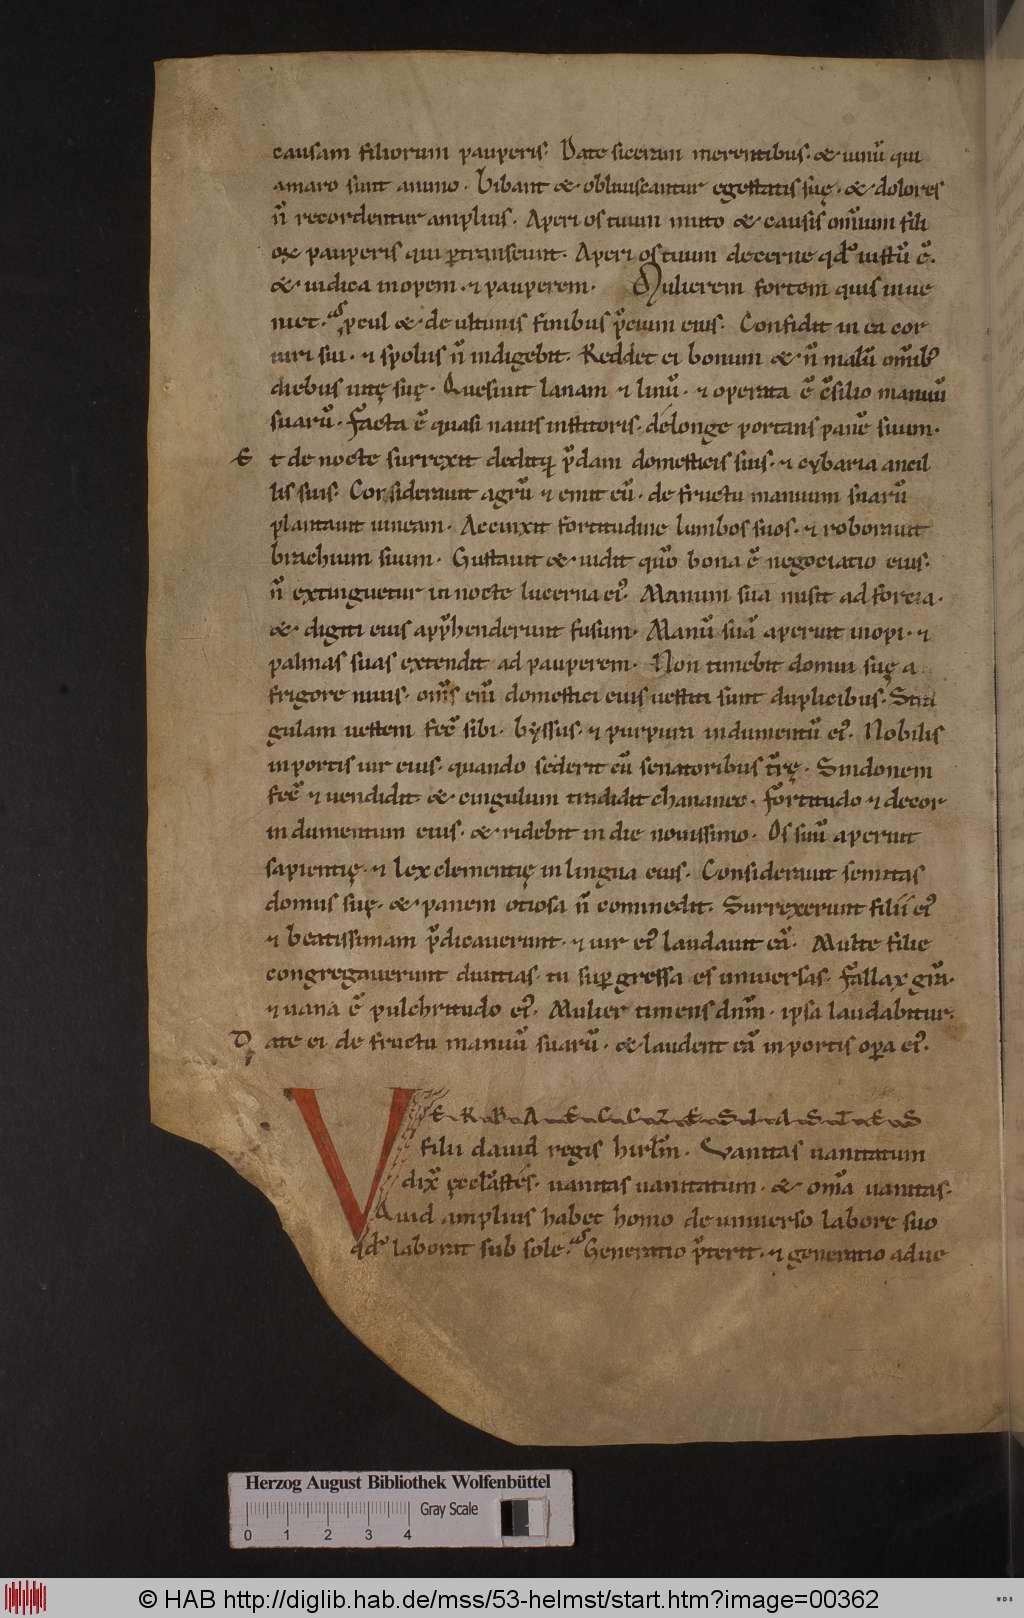 causam filiorum pauperis. Date siceram merentibus. & uinū qui
amaro sunt animo. Bibant & obliuiscantur egestatis suę. & dolores
n̄ recordentur amplius. Aperi os tuum muto & causis om̄ium fili
oꝝ pauperis qui ꝑtranseunt. Aperi os tuum decerne qđ iustū ē.
& uidica inopem. ⁊ pauperem. Mulierem fortem quis inue
niet. ꝓcul & de ultimis finibus p̄cium eius. Confidit in ea cor
uiri sui. ⁊ spoliis n̄ indigebit. Reddet ei bonum & n̄ malū om̄ib;
diebus uitę suę. Quesiuit lanam ⁊ linū. ⁊ operata ē c̄silio manuū
suarū. Facta ē quasi nauis institoris. de longe portans panē suum.
Et de nocte surrexit deditq; p̄dam domesticis suis. ⁊ cybaria ancil
lis suis. Considerauit agrū ⁊ emit eū. de fructu manuum suarū
plantauit uineam. Accinxit fortitudine lumbos suos. ⁊ roborauit
brachium suum. Gustauit & uidit qm̄ bona ē negociatio eius.
n̄ extinguetur in nocte lucerna ei᾽. Manum suā misit ad forcia.
& digiti eius app̄henderunt fusum. Manū suā aperuit inopi. ⁊
palmas suas extendit ad pauperem. Non timebit domui suę a
frigore niuis. om̄s eni domestici eius uestiti sunt duplicibus. Stra
gulam uestem fec̄ sibi. byssus. ⁊ purpura indumentū ei᾽. Nobilis
in portis uir eius. quando sederit cū senatoribus t̄rę. Sindonem
fec̄ ⁊ uendidit & cingulum tradidit chananeo. Fortitudo ⁊ decor
indumentum eius. & ridebit in die nouissimo. Os suū aperuit
sapientię. ⁊ lex clementię in lingua eius. Considerauit semitas
domus suę. & panem otiosa n̄ commedit. Surrexerunt filii ei᾽
⁊ beatissimam p̄dicauerunt. ⁊ uir ei᾽ laudauit eā. Multe filie
congregauerunt diuitias. tu suꝑgressa es uniuersas. Fallax gr̄a.
⁊ uana ē pulchritudo ei᾽. Mulier timens dnm̄. ipsa laudabitur.
Date ei de fructu manuū suarū. & laudent eā in portis oꝑa ei᾽.
VERBA ECCLESIASTES
filii dauid regis hirl̄m. Vanitas uanitatum
dix̄ ęccl̄astes. uanitas uanitatum. & om̄a uanitas.
Quid amplius habet homo de uniuerso labore suo
qđ laborat sub sole. Generatio p̄terit. ⁊ generatio adue
Herzog August Bibliothek Wolfenbüttel
Gray Scale
0 1 2 3 4
© HAB http://diglib.hab.de/mss/53-helmst/start.htm?image=00362